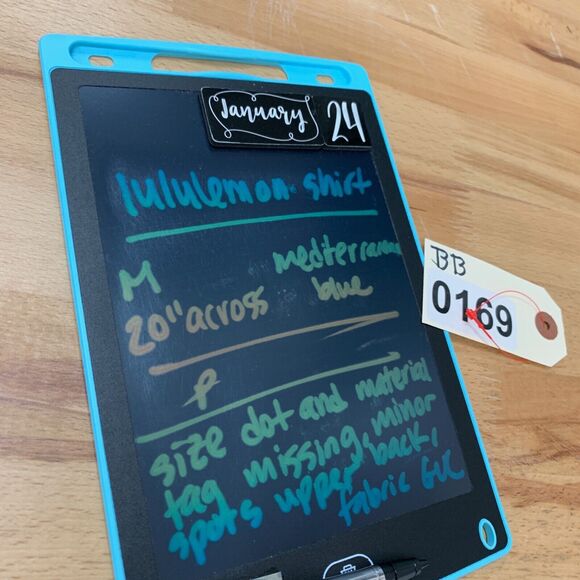 January 24
lululemon shirt
M mediterrane
20" across blue
P
size dot and material
tag missing, minor
spots upper back,
fabric GUC
BB
0169